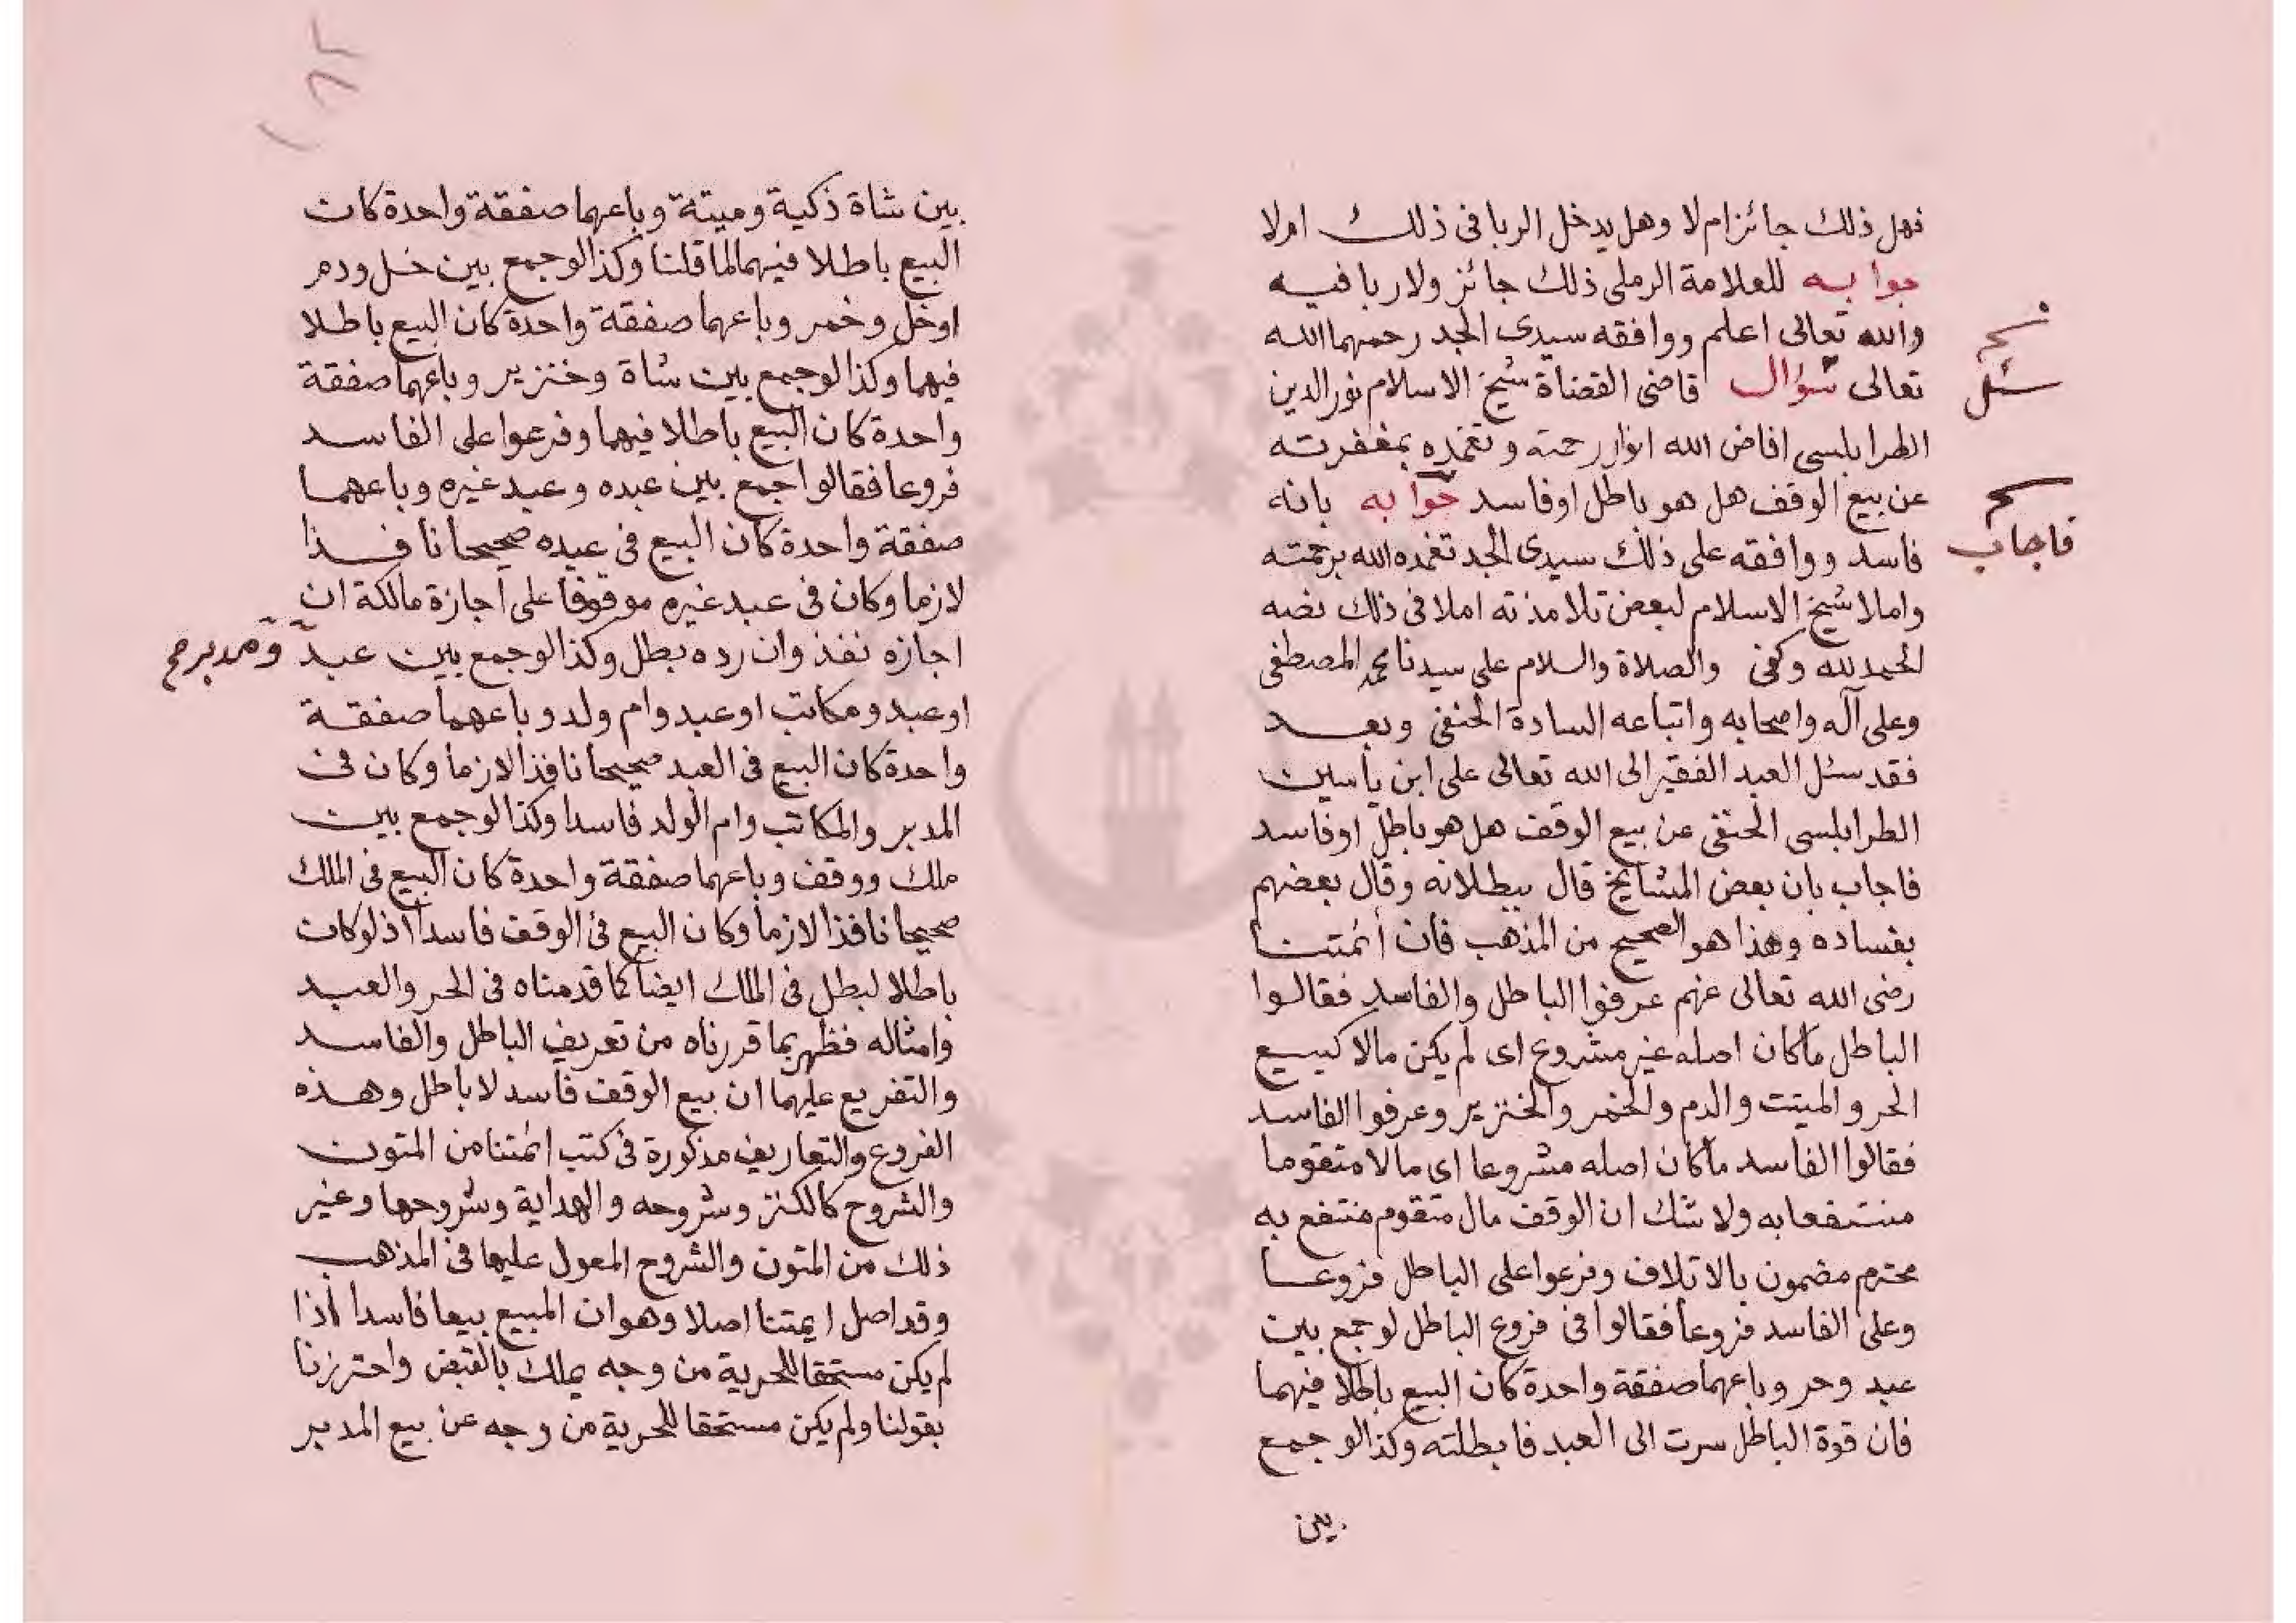 فهل ذلك جائز ام لا وهل يدخل الربا فى ذلك اولا
جوابه للعلامة الرملى ذلك جائز ولا ربا فيه
والله تعالى اعلم ووافقه سيدى الجد رحمهما الله
تعالى سؤال قاضى القضاة شيخ الاسلام نور الدين
سئل
الطرابلسى افاض الله انوار رحمته وتغمده بمغفرته
عن بيع الوقف هل هو باطل او فاسد جوابه بانه
فاجاب
فاسد ووافقه على ذلك سيدى الجد تغمده الله برحمته
واملا شيخ الاسلام لبعض تلامذته املا فى ذلك نصه
الحمد لله وكفى والصلاة والسلام على سيدنا محمد المصطفى
وعلى آله واصحابه واتباعه السادة الحنفى وبعد
فقد سئل العبد الفقير الى الله تعالى على ابن ياسين
الطرابلسى الحنفى عن بيع الوقف هل هو باطل او فاسد
فاجاب بان بعض المشايخ قال ببطلانه وقال بعضهم
بفساده وهذا هو الصحيح من المذهب فان أئمتنا
رضى الله تعالى عنهم عرفوا الباطل والفاسد فقالوا
الباطل ما كان اصله غير مشروع اى لم يكن مالا كبيع
الحر والميتت والدم والخمر والخنزير وعرفوا الفاسد
فقالوا الفاسد ما كان اصله مشروعا اى مالا متقوما
منتفعا به ولا شك ان الوقف مال متقوم منتفع به
محترم مضمون بالاتلاف وفرعوا على الباطل فروعا
وعلى الفاسد فروعا فقالوا فى فروع الباطل لو جمع بين
عبد وحر وباعهما صفقة واحدة كان البيع باطلا فيهما
فان قوة الباطل سرت الى العبد فابطلته وكذا لو جمع
بين
بين شاة ذكية وميتة وباعهما صفقة واحدة كان
البيع باطلا فيهما لما قلنا وكذا لو جمع بين خل ودم
او خل وخمر وباعهما صفقة واحدة كان البيع باطلا
فيهما وكذا لو جمع بين شاة وخنزير وباعهما صفقة
واحدة كان البيع باطلا فيهما وفرعوا على الفاسد
فروعا فقالوا جمع بين عبده وعبد غيره وباعهما
صفقة واحدة كان البيع فى عبده صحيحا نافذا
لازما وكان فى عبد غيره موقوفا على اجازة مالكه ان
اجازه نفذ وان رده بطل وكذا لو جمع بين عبد ومدبر صح
او عبد ومكاتب او عبد وام ولد وباعهما صفقة
واحدة كان البيع فى العبد صحيحا نافذا لازما وكان فى
المدبر والمكاتب وام الولد فاسدا وكذا لو جمع بين
ملك ووقف وباعهما صفقة واحدة كان البيع فى الملك
صحيحا نافذا لازما وكان البيع فى الوقف فاسدا اذ لو كان
باطلا لبطل فى الملك ايضا كما قدمناه فى الحر والعبد
وامثاله فظهر بما قررناه من تعريف الباطل والفاسد
والتفريع عليهما ان بيع الوقف فاسد لا باطل وهذه
الفروع والتعاريف مذكورة فى كتب ائمتنا من المتون
والشروح كالكنز وشروحه والهداية وشروحها وغير
ذلك من المتون والشروح المعول عليها فى المذهب
وقد اصل ايمتنا اصلا وهو ان المبيع بيعا فاسدا اذا
لم يكن مستحقا للحرية من وجه يملك بالقبض واحترزنا
بقولنا ولم يكن مستحقا للحرية من وجه عن بيع المدبر